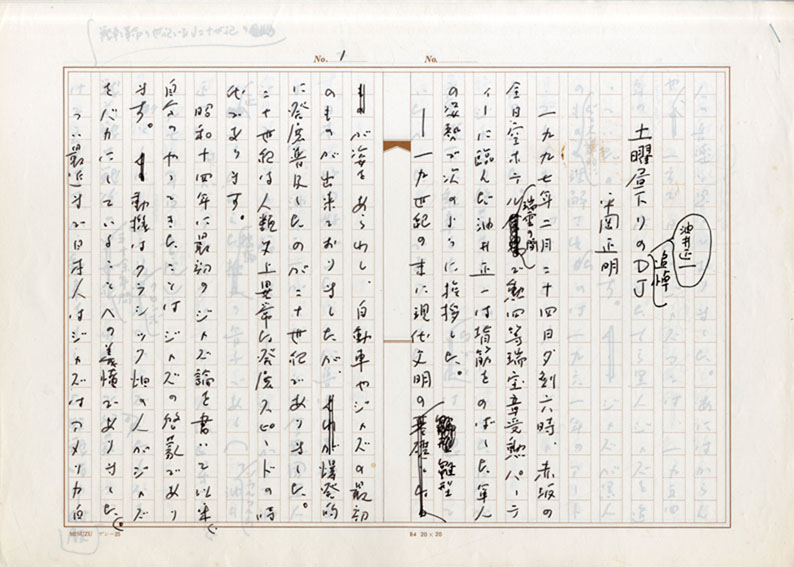 No. 1
No.
土曜昼下りのDJ
油井正一
追悼
平岡正明
一九九七年二月二十四日夕刻六時、赤坂の
全日空ホテル瑞雲の間で勲四等瑞宝章受勲パーテ
ィーに臨んだ油井正一は背筋をのばした軍人
の姿勢で次のように挨拶した。
――一九世紀の末に現代文明の雛型
が姿をあらわし、自動車やジャズの最初
のものが出来ておりましたが、爆発的
に発展普及したのが二十世紀でありました。
二十世紀は人類史上異常な発展スピードの時
代であります。
昭和十四年に最初のジャズ論を書いて以来
自分のやってきたことはジャズの啓蒙であり
ます。動機はクラシック畑の人がジャズ
をバカにしていることへの義憤でありました。
つい最近まで日本人はジャズはアメリカ白
MISUZU
B4 20×20